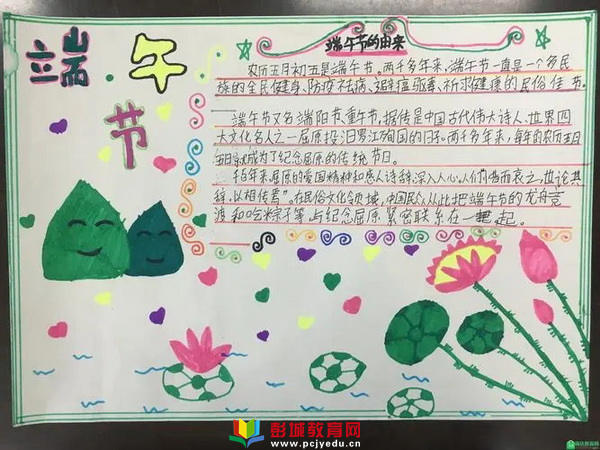 端午节
端午节的由来
农历五月初五是端午节。两千多年来,端午节一直是一个多民
族的全民健身、防疫祛病、避瘟驱毒、祈求健康的民俗佳节。
端午节又名端阳节、重午节,据传是中国古代伟大诗人、世界四
大文化名人之一屈原投汨罗江殉国的日子。两千多年来,每年的农历五月
五日就成为了纪念屈原的传统节日。
千百年来,屈原的爱国精神和感人诗辞,深入人心,人们“惜而哀之,世论其
辞,以相传焉”。在民俗文化领域,中国民众从此把端午节的龙舟竞
渡和吃粽子等与纪念屈原紧密联系在一起。
彭城教育网
www.pcjyedu.cn